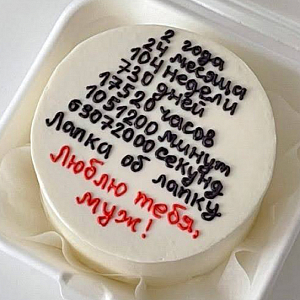 2 года
24 месяца
104 недели
730 дней
17520 часов
1051200 минут
63072000 секунд
Лапка об лапку
Люблю тебя,
муж!